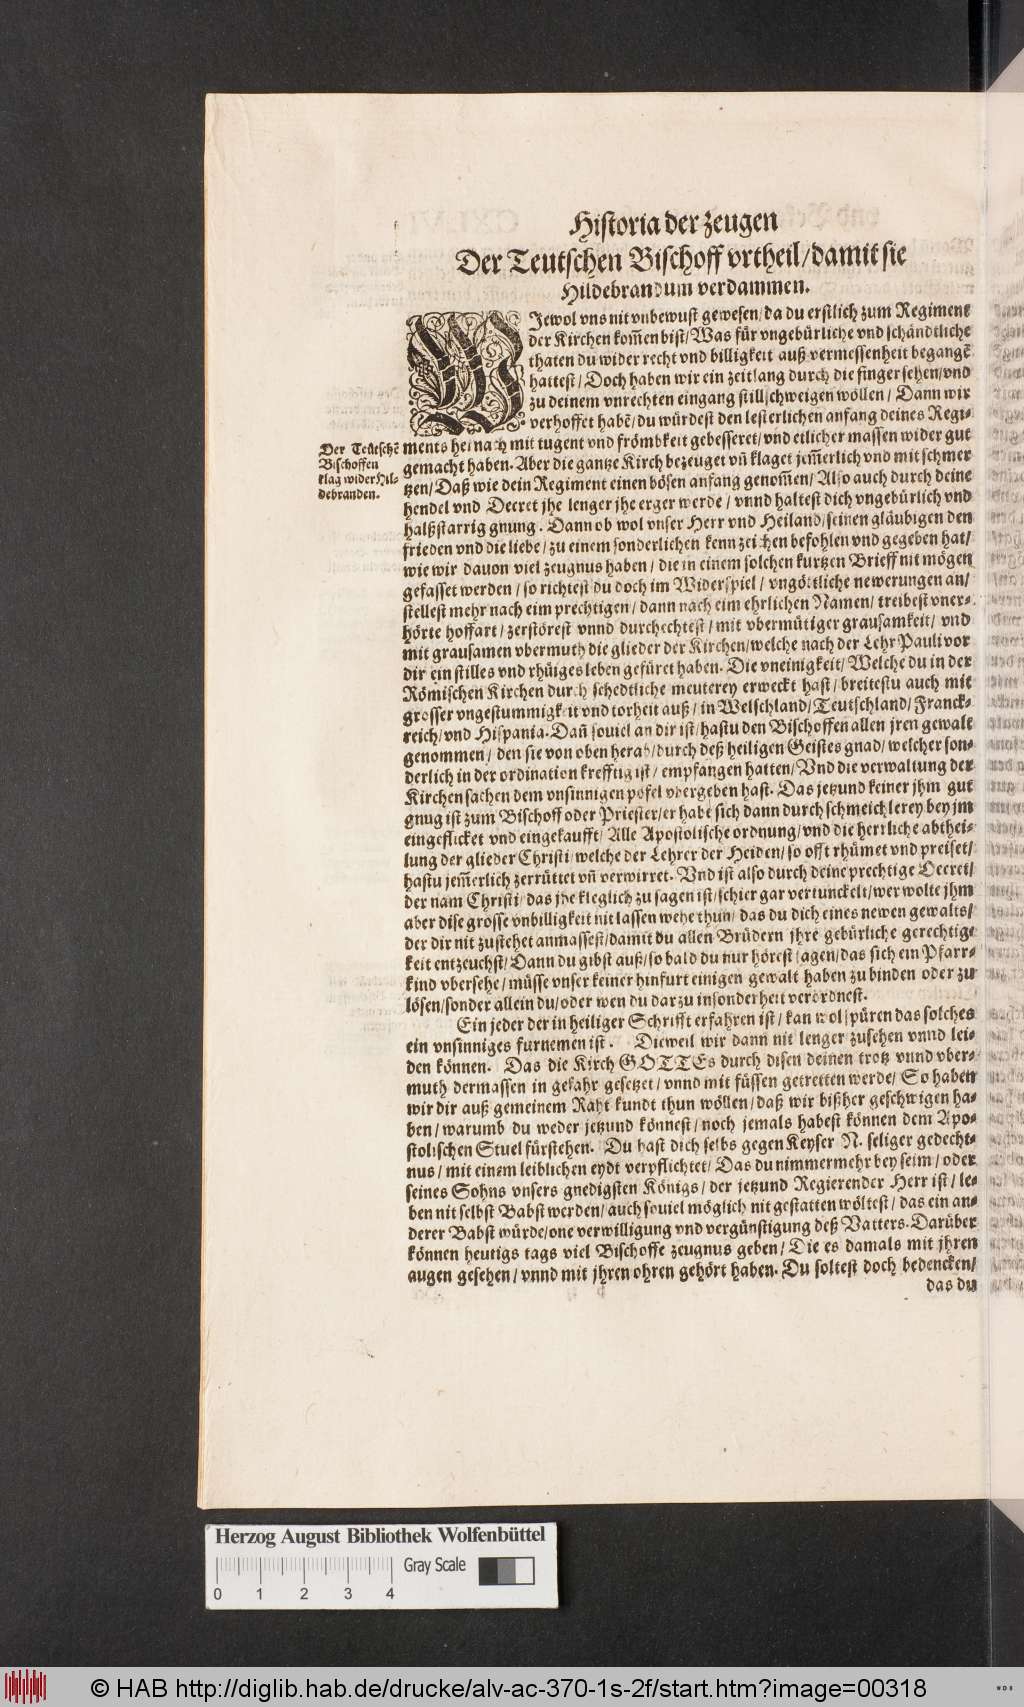 Historia der zeugen
Der Teutschen Bischoff vrtheil/damit sie
Hildebrandum verdammen.
WJewol vns nit vnbewust gewesen/da du erstlich zum Regiment
der Kirchen kom̃en bist/Was für vngebürliche vnd schändtliche
thaten du wider recht vnd billigkeit auß vermessenheit begangẽ
hattest/Doch haben wir ein zeitlang durch die finger sehen/vnd
zu deinem vnrechten eingang stillschweigen wöllen/Dann wir
verhoffet habẽ/du würdest den lesterlichen anfang deines Regi-
Der Teütschẽ
Bischoffen
klag wider Hil-
debranden.
ments hernach mit tugent vnd frömbkeit gebesseret/vnd etlicher massen wider gut
gemacht haben. Aber die gantze Kirch bezeuget vñ klaget jem̃erlich vnd mit schmer
tzen/Daß wie dein Regiment einen bösen anfang genom̃en/Also auch durch deine
hendel vnd Decret jhe lenger jhe erger werde/vnnd haltest dich vngebürlich vnd
halßstarrig gnung. Dann ob wol vnser Herr vnd Heiland/seinen gläubigen den
frieden vnd die liebe/zu einem sonderlichen kennzeichen befohlen vnd gegeben hat/
wie wir dauon viel zeugnus haben/die in einem solchen kurtzen Brieff nit mögen
gefasset werden/so richtest du doch im Widerspiel/vngöttliche newerungen an/
stellest mehr nach eim prechtigen/dann nach eim ehrlichen Namen/treibest vner-
hörte hoffart/zerstörest vnnd durchechtest/mit vbermütiger grausamkeit/vnd
mit grausamen vbermuth die glieder der Kirchen/welche nach der Lehr Pauli vor
dir ein stilles vnd rhüiges leben gefüret haben. Die vneinigkeit/Welche du in der
Römischen Kirchen durch schedtliche meuterey erweckt hast/breitestu auch mit
grosser vngestummigkeit vnd torheit auß/in Welschland/Teutschland/Franck-
reich/vnd Hispania. Dañ souiel an dir ist/hastu den Bischoffen allen jren gewalt
genommen/den sie von oben herab/durch deß heiligen Geistes gnad/welcher son-
derlich in der ordination krefftig ist/empfangen hatten/Vnd die verwaltung der
Kirchen sachen dem vnsinnigen pofel vbergeben hast. Das jetzund keiner jhm gut
gnug ist zum Bischoff oder Priester/er habe sich dann durch schmeichlerey bey jm
eingeflicket vnd eingekaufft/Alle Apostolische ordnung/vnd die herrliche abthei-
lung der glieder Christi/welche der Lehrer der Heiden/so offt rhümet vnd preiset/
hastu jem̃erlich zerrüttet vñ verwirret. Vnd ist also durch deine prechtige Decret/
der nam Christi/das jhe kleglich zu sagen ist/schier gar vertunckelt/wer wolte jhm
aber dise grosse vnbilligkeit nit lassen wehe thun/das du dich eines newen gewalts/
der dir nit zustehet anmassest/damit du allen Brüdern jhre gebürliche gerechtig-
keit entzeuchst/Dann du gibst auß/so bald du nur hörest sagen/das sich ein Pfarr-
kind vbersehe/müsse vnser keiner hinfurt einigen gewalt haben zu binden oder zu
lösen/sonder allein du/oder wen du darzu insonderheit verordnest.
Ein jeder der in heiliger Schrifft erfahren ist/kan wol spüren das solches
ein vnsinniges furnemen ist. Dieweil wir dann nit lenger zusehen vnnd lei-
den können. Das die Kirch GOTTEs durch disen deinen trotz vnnd vber-
muth dermassen in gefahr gesetzet/vnnd mit füssen getretten werde/So haben
wir dir auß gemeinem Raht kundt thun wöllen/daß wir bißher geschwigen ha-
ben/warumb du weder jetzund könnest/noch jemals habest können dem Apo-
stolischen Stuel fürstehen. Du hast dich selbs gegen Keyser N. seliger gedecht-
nus/mit einem leiblichen eydt verpflichtet/Das du nimmermehr bey seim/oder
seines Sohns vnsers gnedigsten Königs/der jetzund Regierender Herr ist/le-
ben nit selbst Babst werden/auch souiel möglich nit gestatten wöltest/das ein an-
derer Babst würde/one verwilligung vnd vergünstigung deß Vatters. Darüber
können heutigs tags viel Bischoffe zeugnus geben/Die es damals mit jhren
augen gesehen/vnnd mit jhren ohren gehört haben. Du soltest doch bedencken/
das du
Herzog August Bibliothek Wolfenbüttel
Gray Scale
0 1 2 3 4
© HAB http://diglib.hab.de/drucke/alv-ac-370-1s-2f/start.htm?image=00318